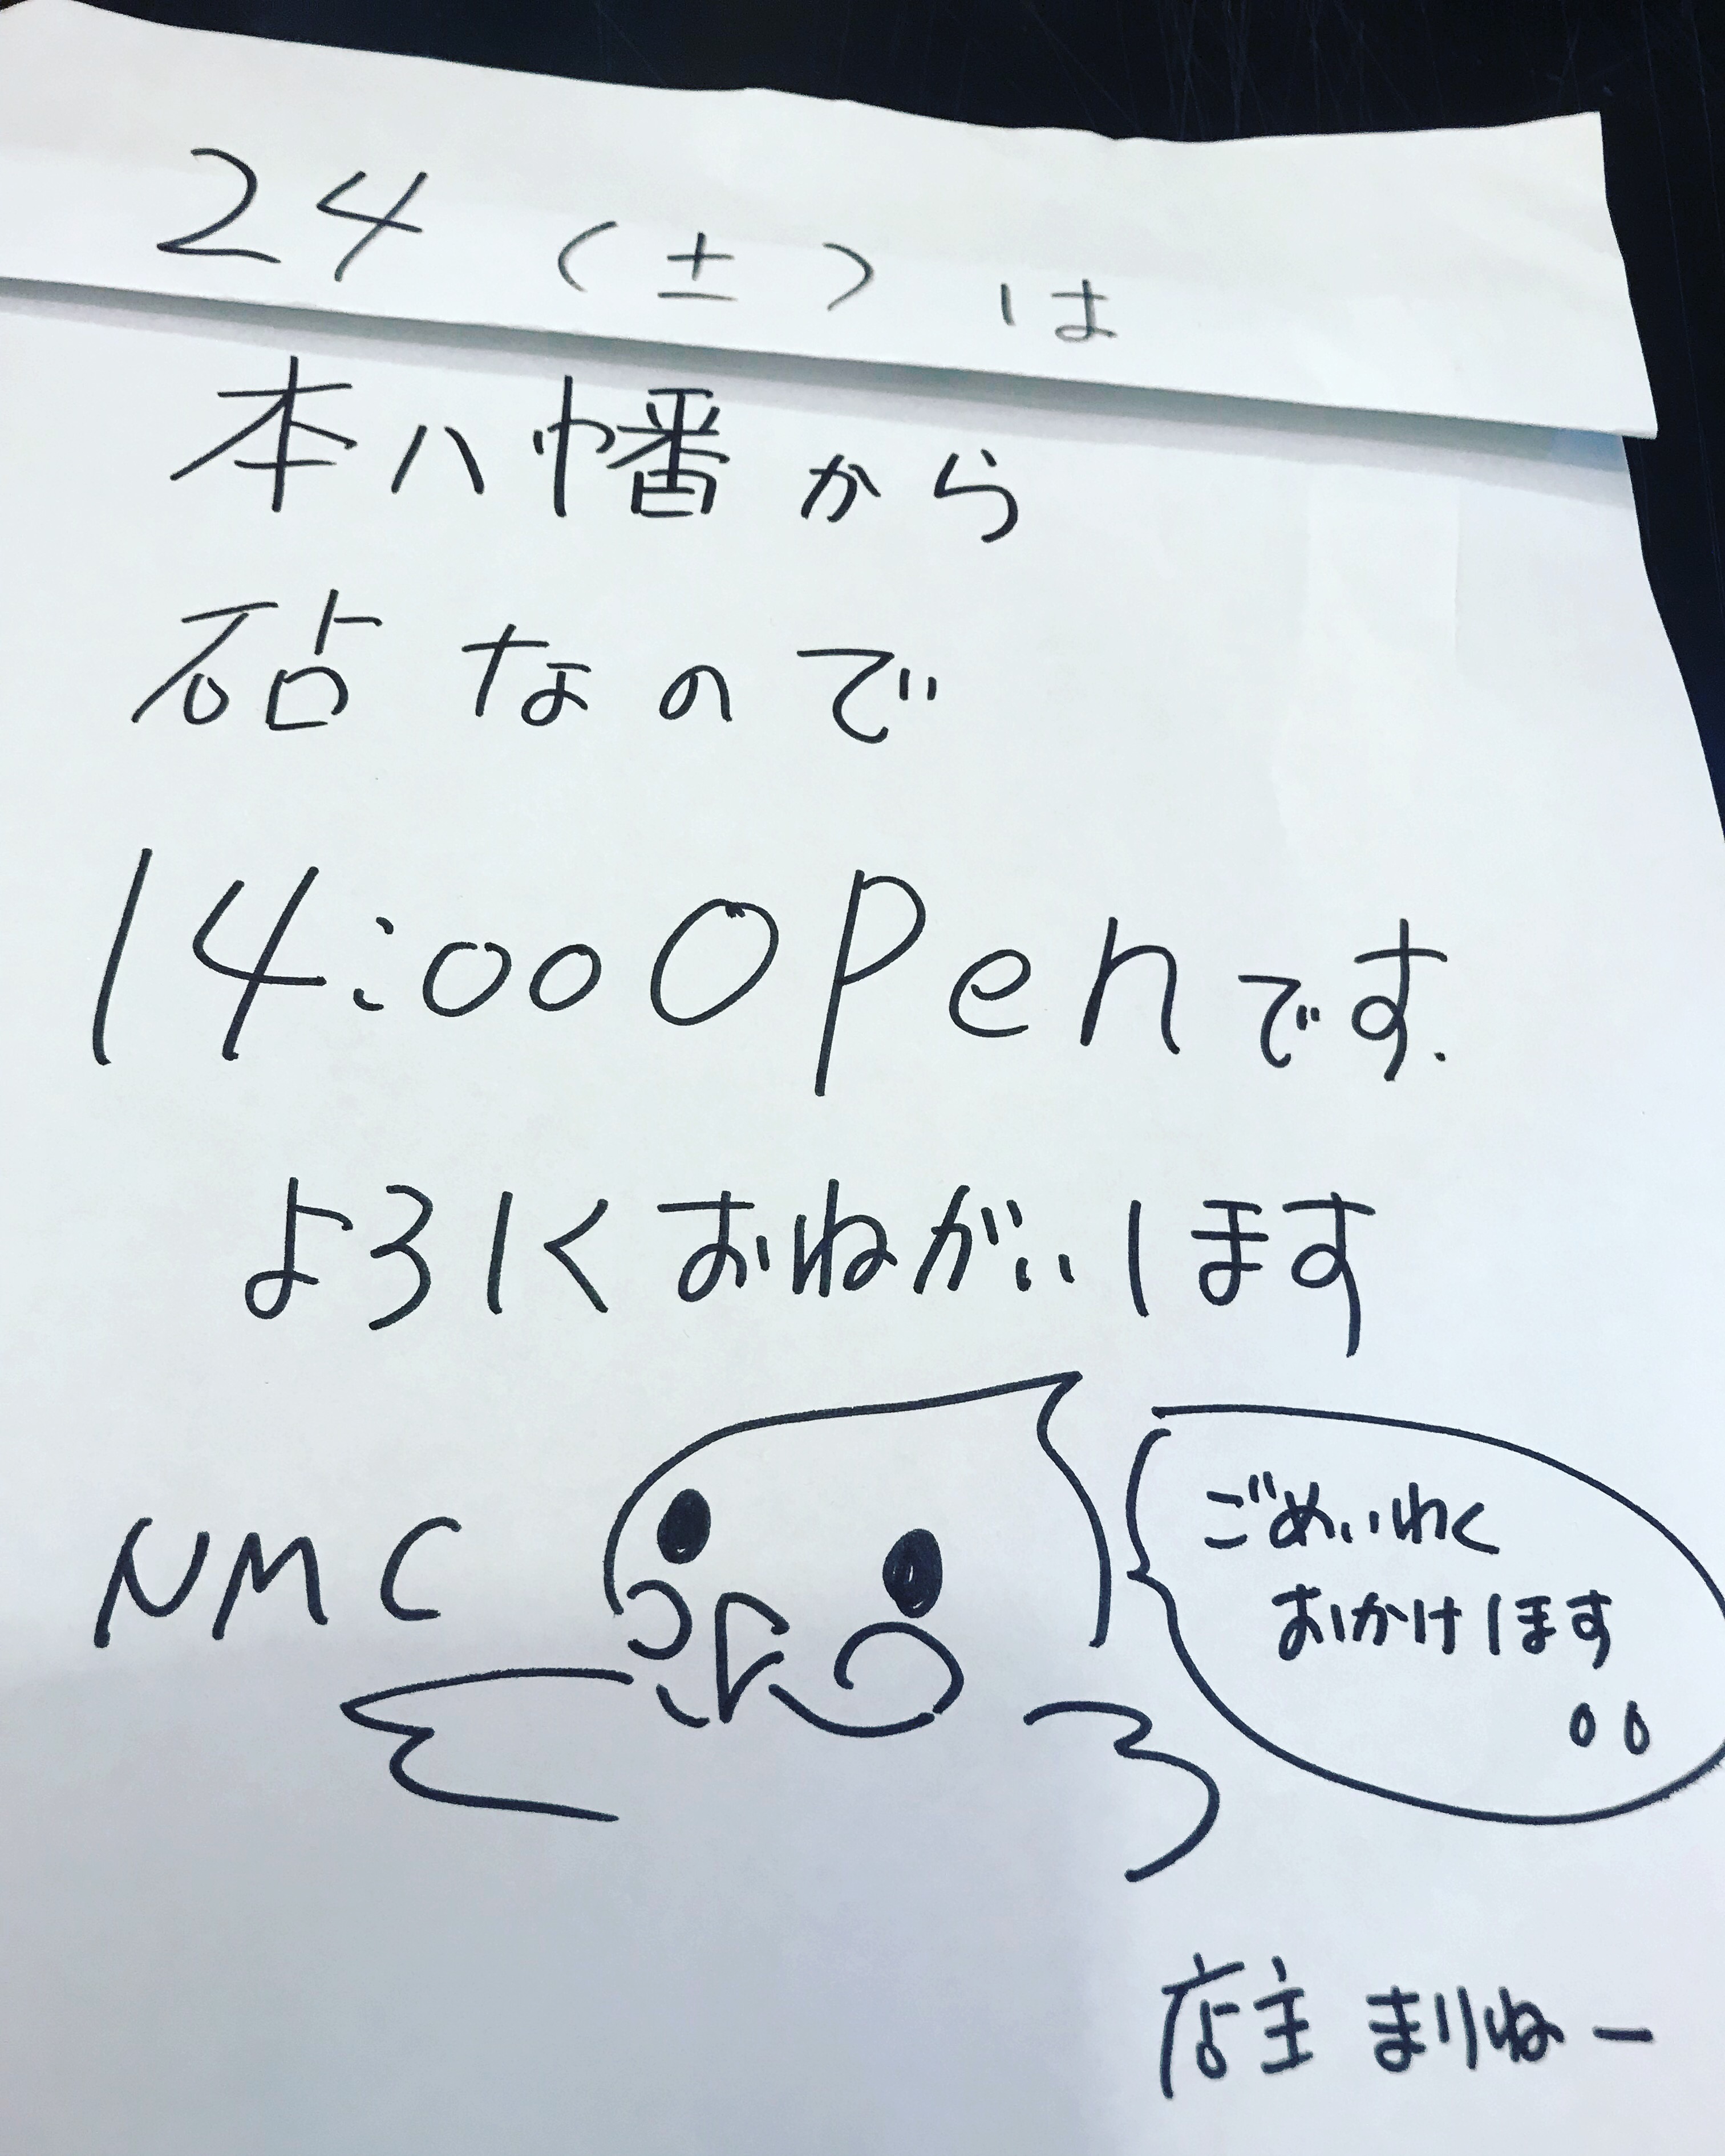 24 (土) は
本八幡から
砧なので
14:00 Openです.
よろしくおねがいします
NMC
ごめいわく
おかけします
店主 まりねー